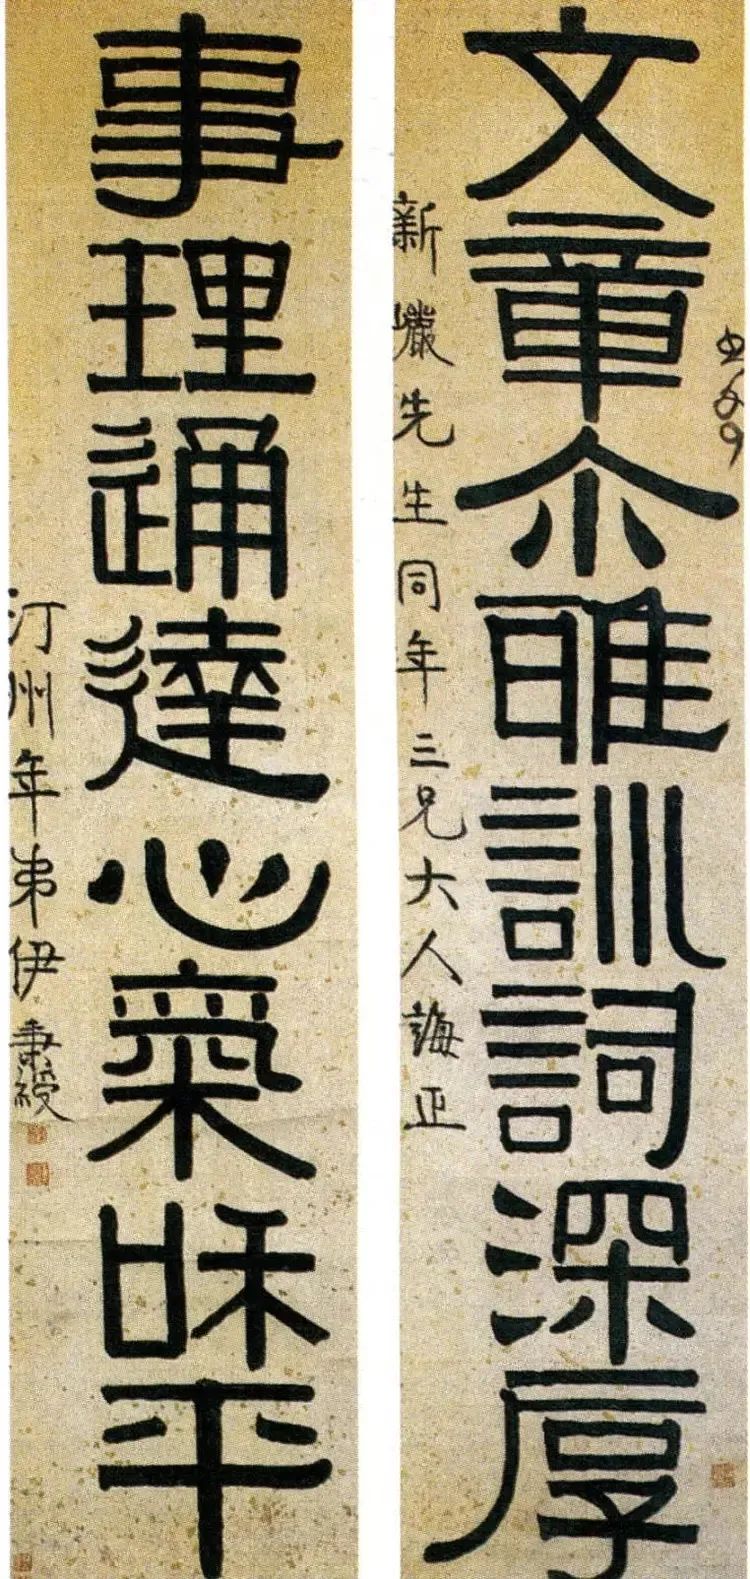 文章尒雅訓詞深厚
新先生同年三兄大人誨正
事理通達心氣咊平
汀州年弟伊秉綬